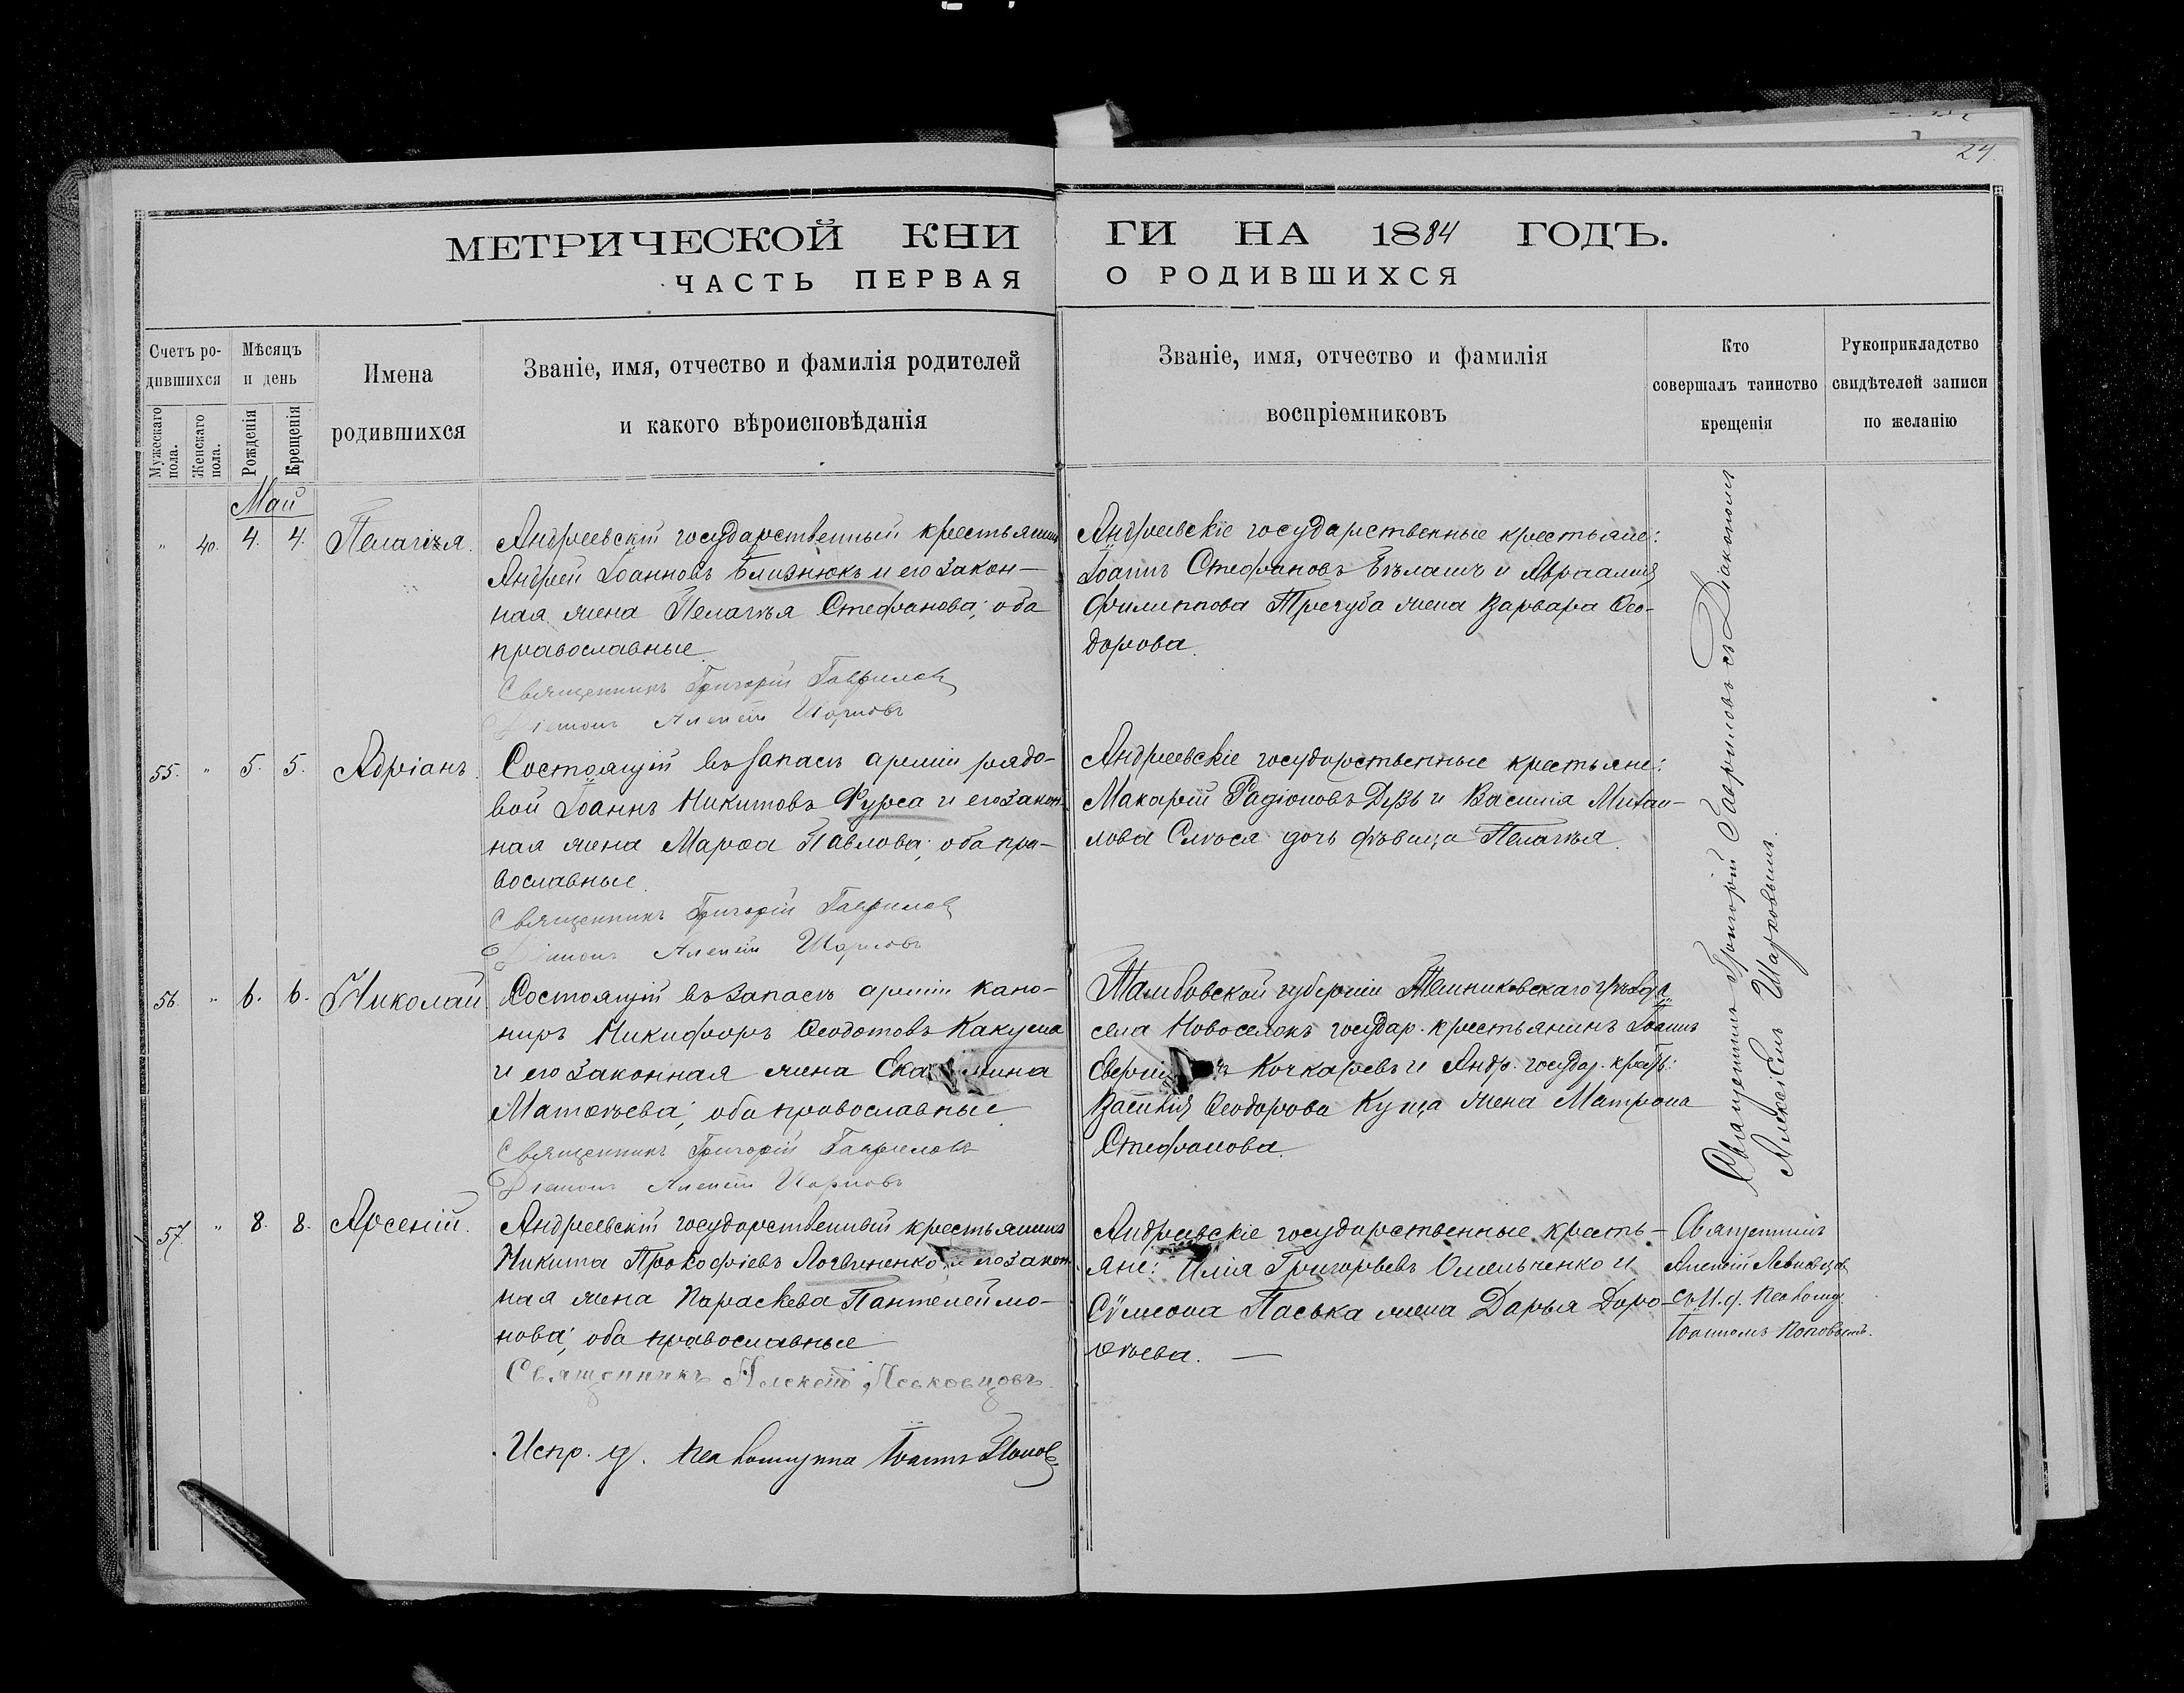 24.
МЕТРИЧЕСКОЙ КНИ
ГИ НА 1884 ГОДЪ.
ЧАСТЬ ПЕРВАЯ
О РОДИВШИХСЯ
Счетъ ро-
дившихся
Мужескаго
пола.
Женскаго
пола.
Мѣсяцъ
и день
Рожденія
Крещенія
Имена
родившихся
Званіе, имя, отчество и фамилія родителей
и какого вѣроисповѣданія
Званіе, имя, отчество и фамилія
воспріемниковъ
Кто
совершалъ таинство
крещенія
Рукоприкладство
свидѣтелей записи
по желанію
Май
" 40. 4. 4. Пелагія.
Андреевскій государственный крестьянинъ
Андрей Іоанновъ Близнюкъ и его закон-
ная жена Пелагѣя Стефанова; оба
православные.
Священникъ Григорій Гавриловъ
Діаконъ Алексѣй
Андреевскіе государственные крестьяне:
Іоаннъ Стефановъ и Авраамія
Филиппова Трегуба жена Варвара Ѳео-
дорова.
Священникъ Григорій Гавриловъ съ Діакономъ
Алексіемъ
55. " 5. 5. Адріанъ.
Состоящій въ запасѣ арміи рядо-
вой Іоаннъ Никитовъ Фурса и его закон-
ная жена Марѳа Павлова; оба пра-
вославные.
Священникъ Григорій Гавриловъ
Діаконъ Алексѣй
Андреевскіе государственные крестьяне:
Макарій Радіоновъ и Василія Михаи-
лова дочь дѣвица Пелагѣя.
56. " 6. 6. Николай
Состоящій въ запасѣ арміи кано-
ниръ Никифоръ Ѳеодотовъ Какуша
и его законная жена
Матѳѣева; оба православные.
Священникъ Григорій Гавриловъ
Діаконъ Алексѣй
Тамбовской губерніи Темниковскаго уѣзда
села Новоселокъ государ. крестьянинъ Іоаннъ
Кочкаревъ и Андр. государ. крест.
Василія Ѳеодорова Куца жена Матрона
Стефанова.
57. " 8. 8. Арсеній.
Андреевскій государственный крестьянинъ
Никита Прокофіевъ Логвиненко и его закон-
ная жена Параскева Пантелеймо-
нова; оба православные
Священникъ Алексѣй Левковцовъ.
Испр. д. Псаломщика Іоаннъ Поповъ
Андреевскіе государственные кресть-
яне: Илія Григорьевъ Омельченко и
Сѵмеона Паська жена Дарья Доро-
ѳѣева. —
Священникъ
Алексѣй Левковцовъ
съ И. д. Псаломщ.
Іоанномъ Поповымъ.